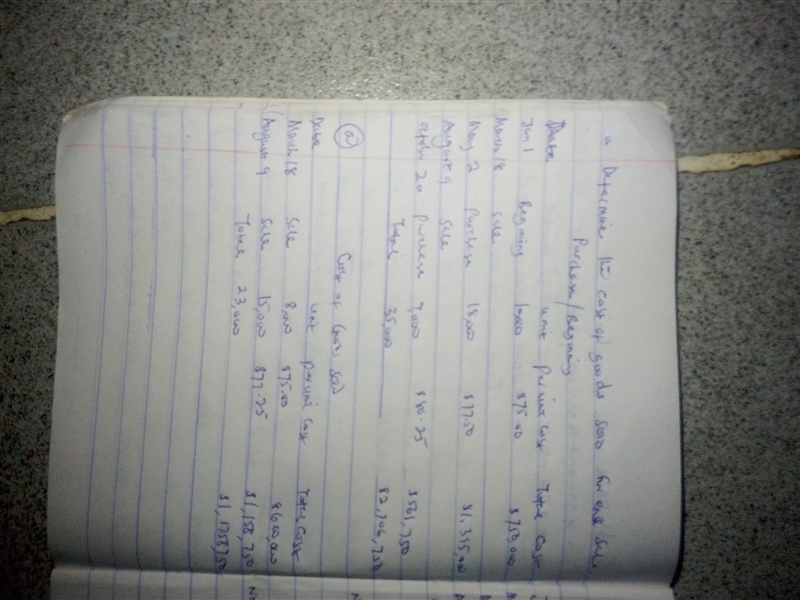 a Determine the cost of goods sold for each sale
Purchase/Beginning
Date unit per unit cost Total Cost
Jan 1 Beginning 10,000 $75.00 $750,000
March 18 sale
May 2 purchase 18,000 $77.50 $1,395,000
August 9 sale
October 20 purchase 7,000 $80.25 $561,750
Total 35,000 $2,706,750
(a) Cost of Goods sold
Date unit per unit cost Total Cost
March 18 Sale 8,000 $75.00 $600,000
August 9 Sale 15,000 $77.25 $1,158,750
Total 23,000 $1,758,750